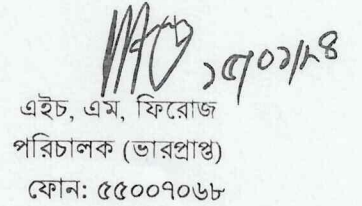 ১৫/০১/২৪
এইচ, এম, ফিরোজ
পরিচালক (ভারপ্রাপ্ত)
ফোন: ৫৫০০৭০৬৮